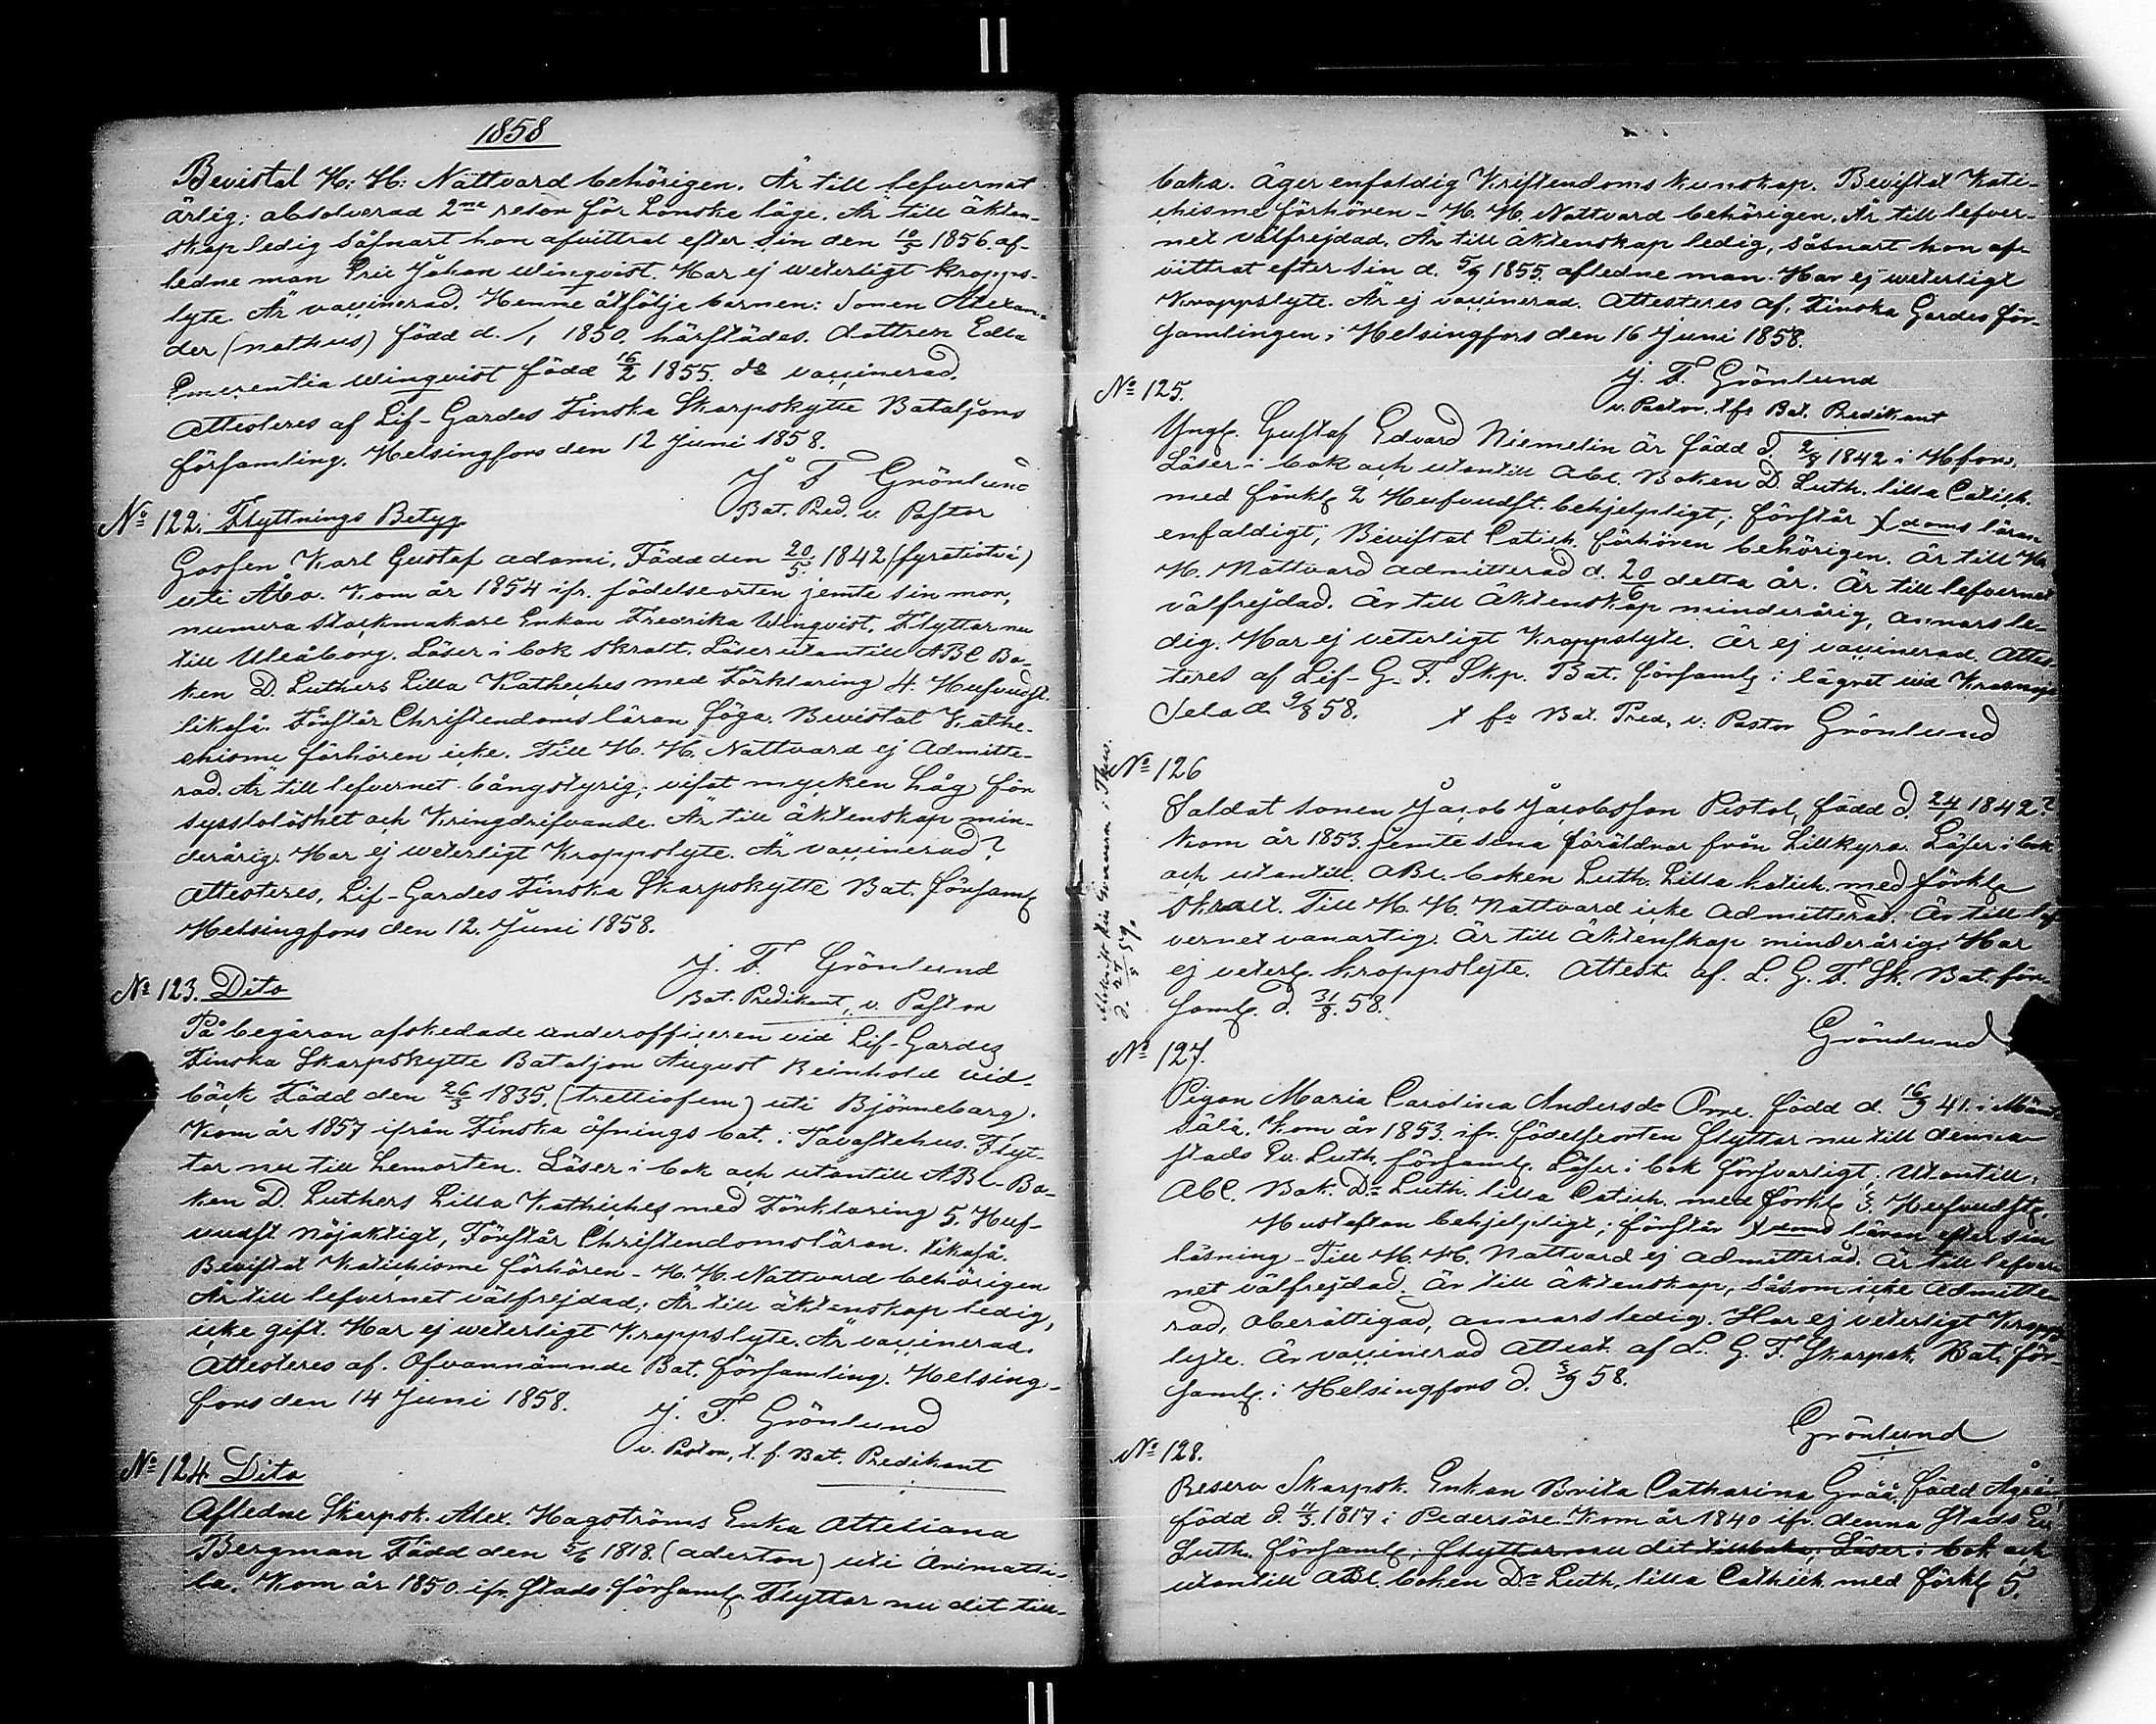 1858
Bevistat H: H: Nattvard behörigen. Är till lefvernet
ärlig; absolverad 2ne resor för Lönske läge. Är till äkten-
skap ledig såsnart hon afvittrat efter sin den 10/5 1856. af-
ledne man Eric Johan Winqvist. Har ej weterligt kropps-
lyte. Är vaccinerad. Henne åtfölje barnen: Sonen Alexan-
der (nothus) född d. / 1850. härstädes. dottren Edla
Emerentia Winqvist född 16/2 1855. do vaccinerad.
Attesteras af Lif-Gardes Finska Skarpskytte Bataljons
församling. Helsingfors den 12 Juni 1858.
J F Grönlund
Bat. Pred. v. Pastor
No 122. Flyttnings Betyg
Gossen Karl Gustaf Adami, Född den 20/5. 1842 (fyratiotvå)
uti Åbo. Kom år 1854 ifr. födelseorten jemte sin mor,
numera Stockmakare Enkan Fredrika Winqvist. Flyttar nu
till Uleåborg. Läser i bok skralt. Läser utantill ABC Bo-
ken D. Luthers Lilla Katheches med Förklaring 4. Hufvudst.
likaså. Förstår Christendoms läran föga. Bevistat Kathe-
chisme förhören icke. Till H. H. Nattvard ej Admitte-
rad. Är till lefvernet bångstyrig; visat mycken håg för
sysslolöshet och Kringdrifvande. Är till äktenskap min-
derårig. Har ej weterligt Kroppslyte. Är vaccinerad?
Attesteres, Lif-Gardes Finska Skarpskytte Bat. församlg
Helsingfors den 12. Juni 1858.
J. F. Grönlund
Bat. Predikant, v. Pastor
No 123. Dito
På begäran afskedade underofficeren vid Lif-Gardes
Finska Skarpskytte Bataljon August Reinhold Vid-
bäck Född den 26/3 1835. (trettiofem) uti Björneborg.
Kom år 1857 ifrån Finska öfnings bat. i Tavastehus. Flyt-
tar nu till hemorten. Läser i bok och utantill ABC-Bo-
ken D. Luthers Lilla Kathiches med Förklaring 5. Huf-
vudst nöjaktigt, Förstår Christendomsläran. likaså.
Bevistat Katichisme förhören - H. H. Nattvard behörigen
Är till lefvernet välfrejdad; Är till äktenskap ledig,
icke gift. Har ej weterligt Kroppslyte. Är vaccinerad.
Attesteres af. Ofvannämnde Bat. församling. Helsing-
fors den 14 Juni 1858.
J. F. Grönlund
v. Pastor, t. f. Bat. Predikant
No 124 Dito
Afledne Skarpsk. Alex. Hagströms Enka Atteliana
Bergman Född den 5/6 1818. (aderton) uti Arimatti-
la. Kom år 1850. ifr. Stads församlg. Flyttar nu dit till-
baka. Äger enfaldig Kristendoms kunskap. Bevistat Kati-
chisme förhören - H. H. Nattvard behörigen. Är till lefver-
net välfrejdad. Är till äktenskap ledig, såsnart hon af-
vittrat efter sin d. 5/9 1855. afledne man. Har ej weterligt
Kroppslyte. Är ej vaccinerad. Attesteres af, Finska Gardes för-
samlingen, i Helsingfors den 16 Juni 1858.
J. F. Grönlund
v. Pastor. t fr Bat. Predikant
No 125.
Yngl. Gustaf Edvard Niemelin är född d. 2/8 1842 i Hfors,
Läser i bok och utantill Abc. Boken D. Luth. lilla Catich.
med förklg 2 Hufvudst. behjelpligt; förstår Xdoms läran
enfaldigt, Bevistat Catich. förhören behörigen. Är till H.
H. Nattvard admitterad d. 20/6 detta år. Är till lefvernet
välfrejdad. Är till Äktenskap minderårig, annars le-
dig. Har ej veterligt Kroppslyte. Är ej vaccinerad. Attes-
teres af Lif-G. F. Skp. Bat. församlg i lägret vid Krasnoje
Selo d. 9/8 58.
t fr Bat. Pred, v: Pastor Grönlund
No 126
Soldat sonen Jacob Jacobsson Pistol, född d. 24/7 1842?
kom år 1853. jemte sina föräldrar från Lillkyro. Läser i bok
och utantill ABC. boken Luth. Lilla katich. med förklg
skralt. Till H. H. Nattvard icke Admitterad. Är till lef
vernet vanartig. Är till Äktenskap minderårig. Har
ej veterlg. kroppslyte. Attest. af. L. G. F. Sk. Bat. för-
samlg. d. 31/8. 58.
Grönlund
d. 27/5 59.
No 127.
Pigan Maria Carolina Andersdr Orre. född d. 16/9 41. i Mänt-
sälä. Kom år 1853. ifr. födelseorten flyttar nu till denna
stads Ev. Luth. församlg. Läser i bok försvarligt; Utantill,
AbC. Bok. Dr Luth. lilla Catich. med förklg 3. Hufvudstg.
Hustaflan behjelpligt; förstår Xdoms läran efter sin
läsning - Till H. H. Nattvard ej admitterad. Är till lefver
net välfrejdad. Är till Äktenskap, såsom icke Admitte-
rad, oberättigad, annars ledig. Har ej veterligt Kropps
lyte. Är vaccinerad Attest. af L. G. F. Skarpsk. Bat. för-
samlg. i Helsingfors d. 3/9 58.
Grönlund
No 128.
Reserv Skarpsk. Enkan Brita Catharina Gråå, född
född d. 11/3. 1817 i Pedersöre. Kom år 1840 ifr. denna Stads Ev
Luth. församlg; flyttar nu dit tillbaka; Läser i bok och
utantill ABC. boken Dr Luth. lilla Catkich. med förklg 5.